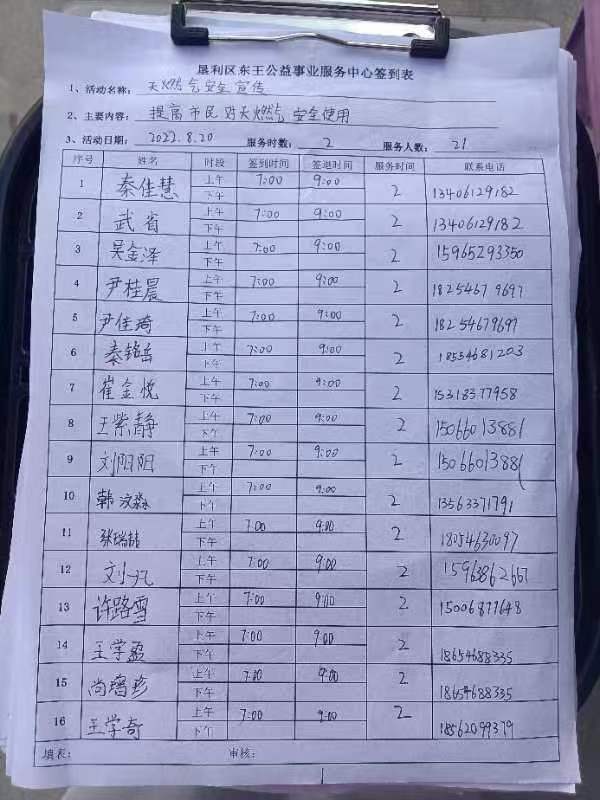 垦利区东王公益事业服务中心签到表
1、活动名称: 天燃气安全宣传
2、主要内容: 提高市民对天燃气安全使用
3、活动日期: 2022.8.20 服务时数: 2 服务人数: 21
序号 姓名 时段 签到时间 签退时间 服务时间 联系电话
1 秦佳慧 上午 7:00 9:00 2 13406129182
下午
2 武省 上午 7:00 9:00 2 13406129182
下午
3 吴金泽 上午 7:00 9:00 2 15965293350
下午
4 尹桂晨 上午 7:00 9:00 2 18254679697
下午
5 尹佳琦 上午 7:00 9:00 2 18254679697
下午
6 秦铭岳 上午 7:00 9:00 2 18554681203
下午
7 崔金悦 上午 7:00 9:00 2 15318377958
下午
8 王紫静 上午 7:00 9:00 2 15066013881
下午
9 刘阳阳 上午 7:00 9:00 2 15066013881
下午
10 韩汶淼 上午 7:00 9:00 2 13563371791
下午
11 张瑞喆 上午 7:00 9:00 2 18054630097
下午
12 刘一凡 上午 7:00 9:00 2
下午
13 许路雪 上午 7:00 9:00 2 15006877648
下午
14 王学盈 上午 7:00 9:00 2 18654688335
下午
15 尚璿珍 上午 7:00 9:00 2 18654688335
下午
16 王学奇 上午 7:00 9:00 2 18562099379
下午
填表: 审核: